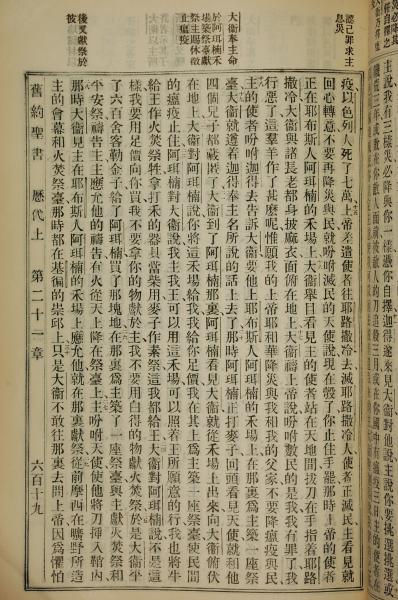 認己罪求主
息災
大衛奉主命
於阿珥楠禾
場築祭臺獻
祭主賜休徵
止瘟疫
後又獻祭於
彼
主說我有三樣災必降與你一樣憑你自擇迦得遂來見大衛對他說主說你要揀選揀選或
疫以色列人死了七萬上帝差遣使者往耶路撒冷去滅耶路撒冷人使者正滅民主看見就
回心轉意不要再降災與民就吩咐滅民的天使說現在彀了你止住手罷那時上帝的使者
正在耶布斯人阿珥楠的禾場上大衛舉目看見主的使者站在天地間拔刀在手指着耶路
撒冷大衛與諸長老都身披麻衣面俯在地上大衛禱上帝說吩咐數民的是我我有罪了我
行惡了這羣羊作了甚麽呢惟願我的上帝耶和華降災與我和我的父家不要降瘟疫與民
主的使者吩咐迦得去告訴大衛要他上耶布斯人阿珥楠的禾場上在那裏爲主築一座祭
臺大衛就遵着迦得奉主名所說的話上去了那時阿珥楠正打麥子回頭看見天使就和他
四個兒子都藏匿了大衛到了阿珥楠那裏阿珥楠看見大衛就從禾場上出來向大衛俯伏
在地上大衛對阿珥楠說你將這禾場給我我給你足價我在其上爲主築一座祭臺使民間
的瘟疫止住阿珥楠對大衛說我主我王可以用這禾場可以照着王所願意的行我也將牛
給王作火焚祭牲拿打禾的器具當柴用麥子作素祭這我都給王大衛對阿珥楠說不是這
樣我要用足價向你買我不要拿你的物獻於主我不要用白得的物獻火焚祭於是大衛平
了六百舍客勒金子給了阿珥楠買了那塊地在那裏爲主築了一座祭臺與主獻火焚祭和
平安祭禱告主主應允他的禱告有火從天上降在祭臺上主吩咐天使使他將刀插入鞘內
那時大衛見主在耶布斯人阿珥楠的禾場上應允他就在那裏獻祭從前摩西在曠野所造
主的會幕和火焚祭臺那時都在基徧的崇邱上只是大衛不敢往那裏去問上帝因爲懼怕
舊約聖書 歷代上 第二十一章 六百十九